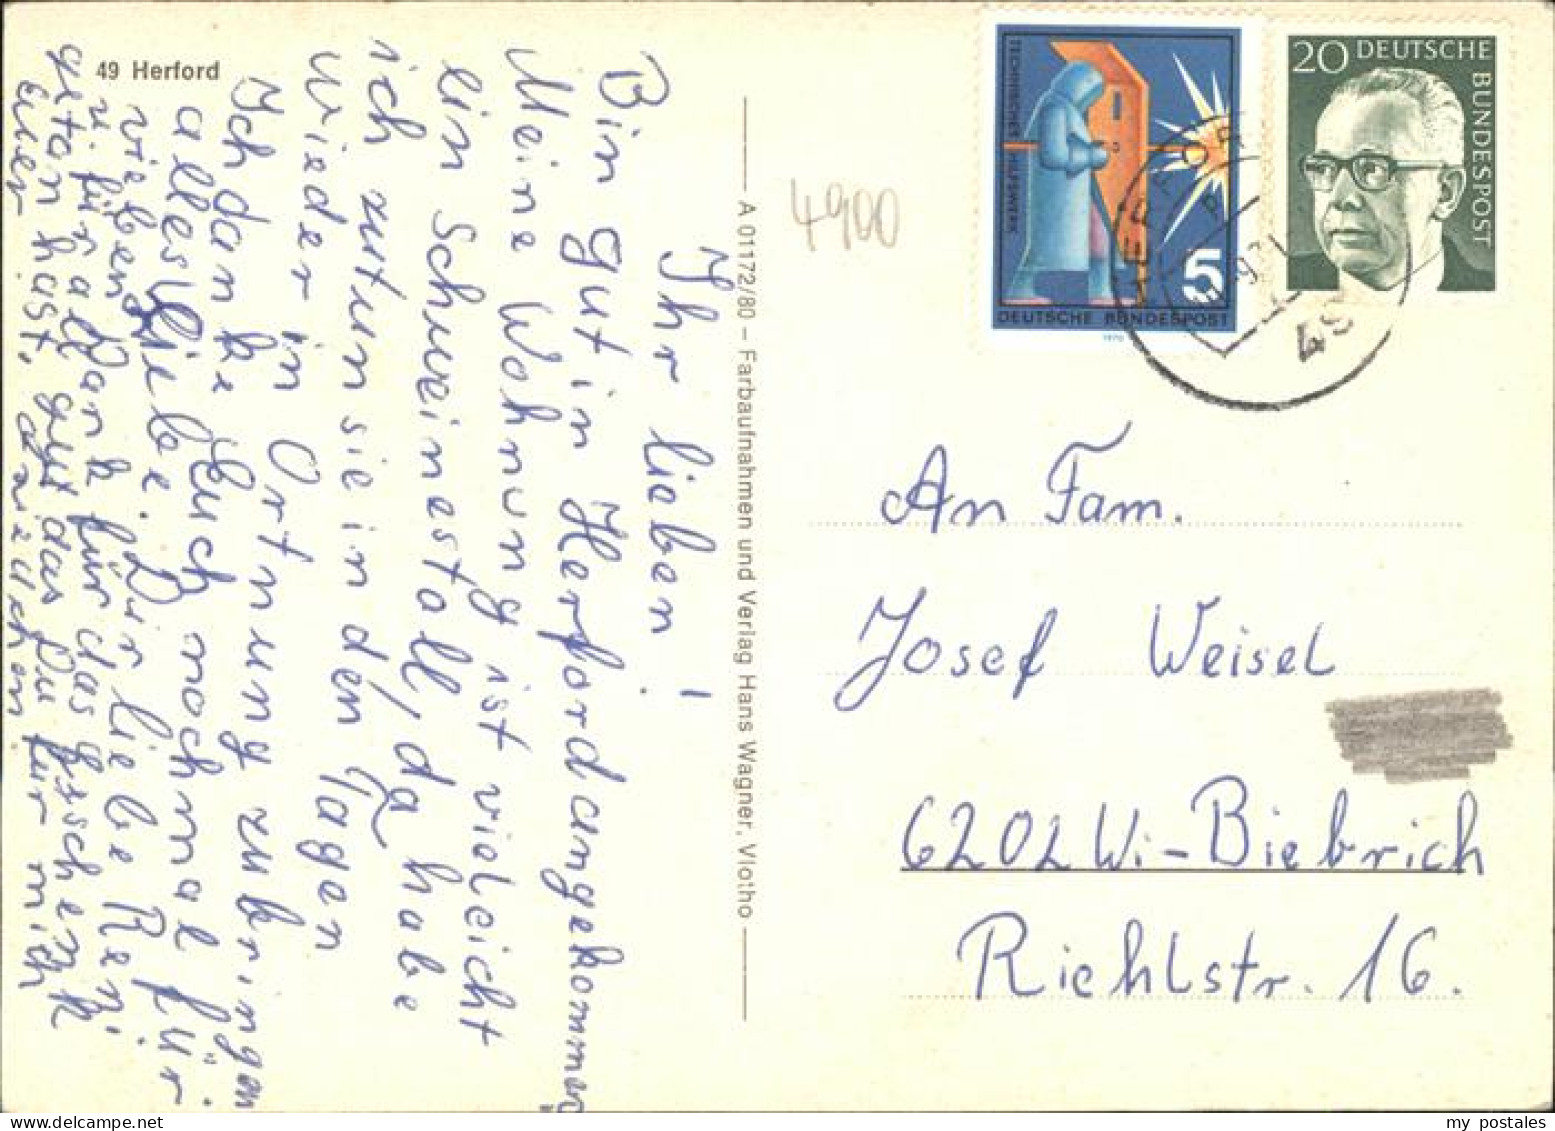 49 Herford
Ihr lieben!
Bin gut in Herford angekommen
Meine Wohnung ist vieleicht
ein Schweinestall, da habe
ich zutun sie in den Tagen
wieder in Ortnung zubringen
Ich danke Euch nochmal für
alles Liebe. Dir liebe Reni
vieben Dank für das Geschenk
zi für all
getan hast, gut das Du für mich
euer
A 01172/80 – Farbaufnahmen und Verlag Hans Wagner, Vlotho
4900
TECHNISCHES HILFSWERK
5
DEUTSCHE BUNDESPOST
1970
20 DEUTSCHE
BUNDESPOST
HERFORD
49
An Fam.
Josef Weisel
6202 Wi-Biebrich
Riehlstr. 16.
my postales